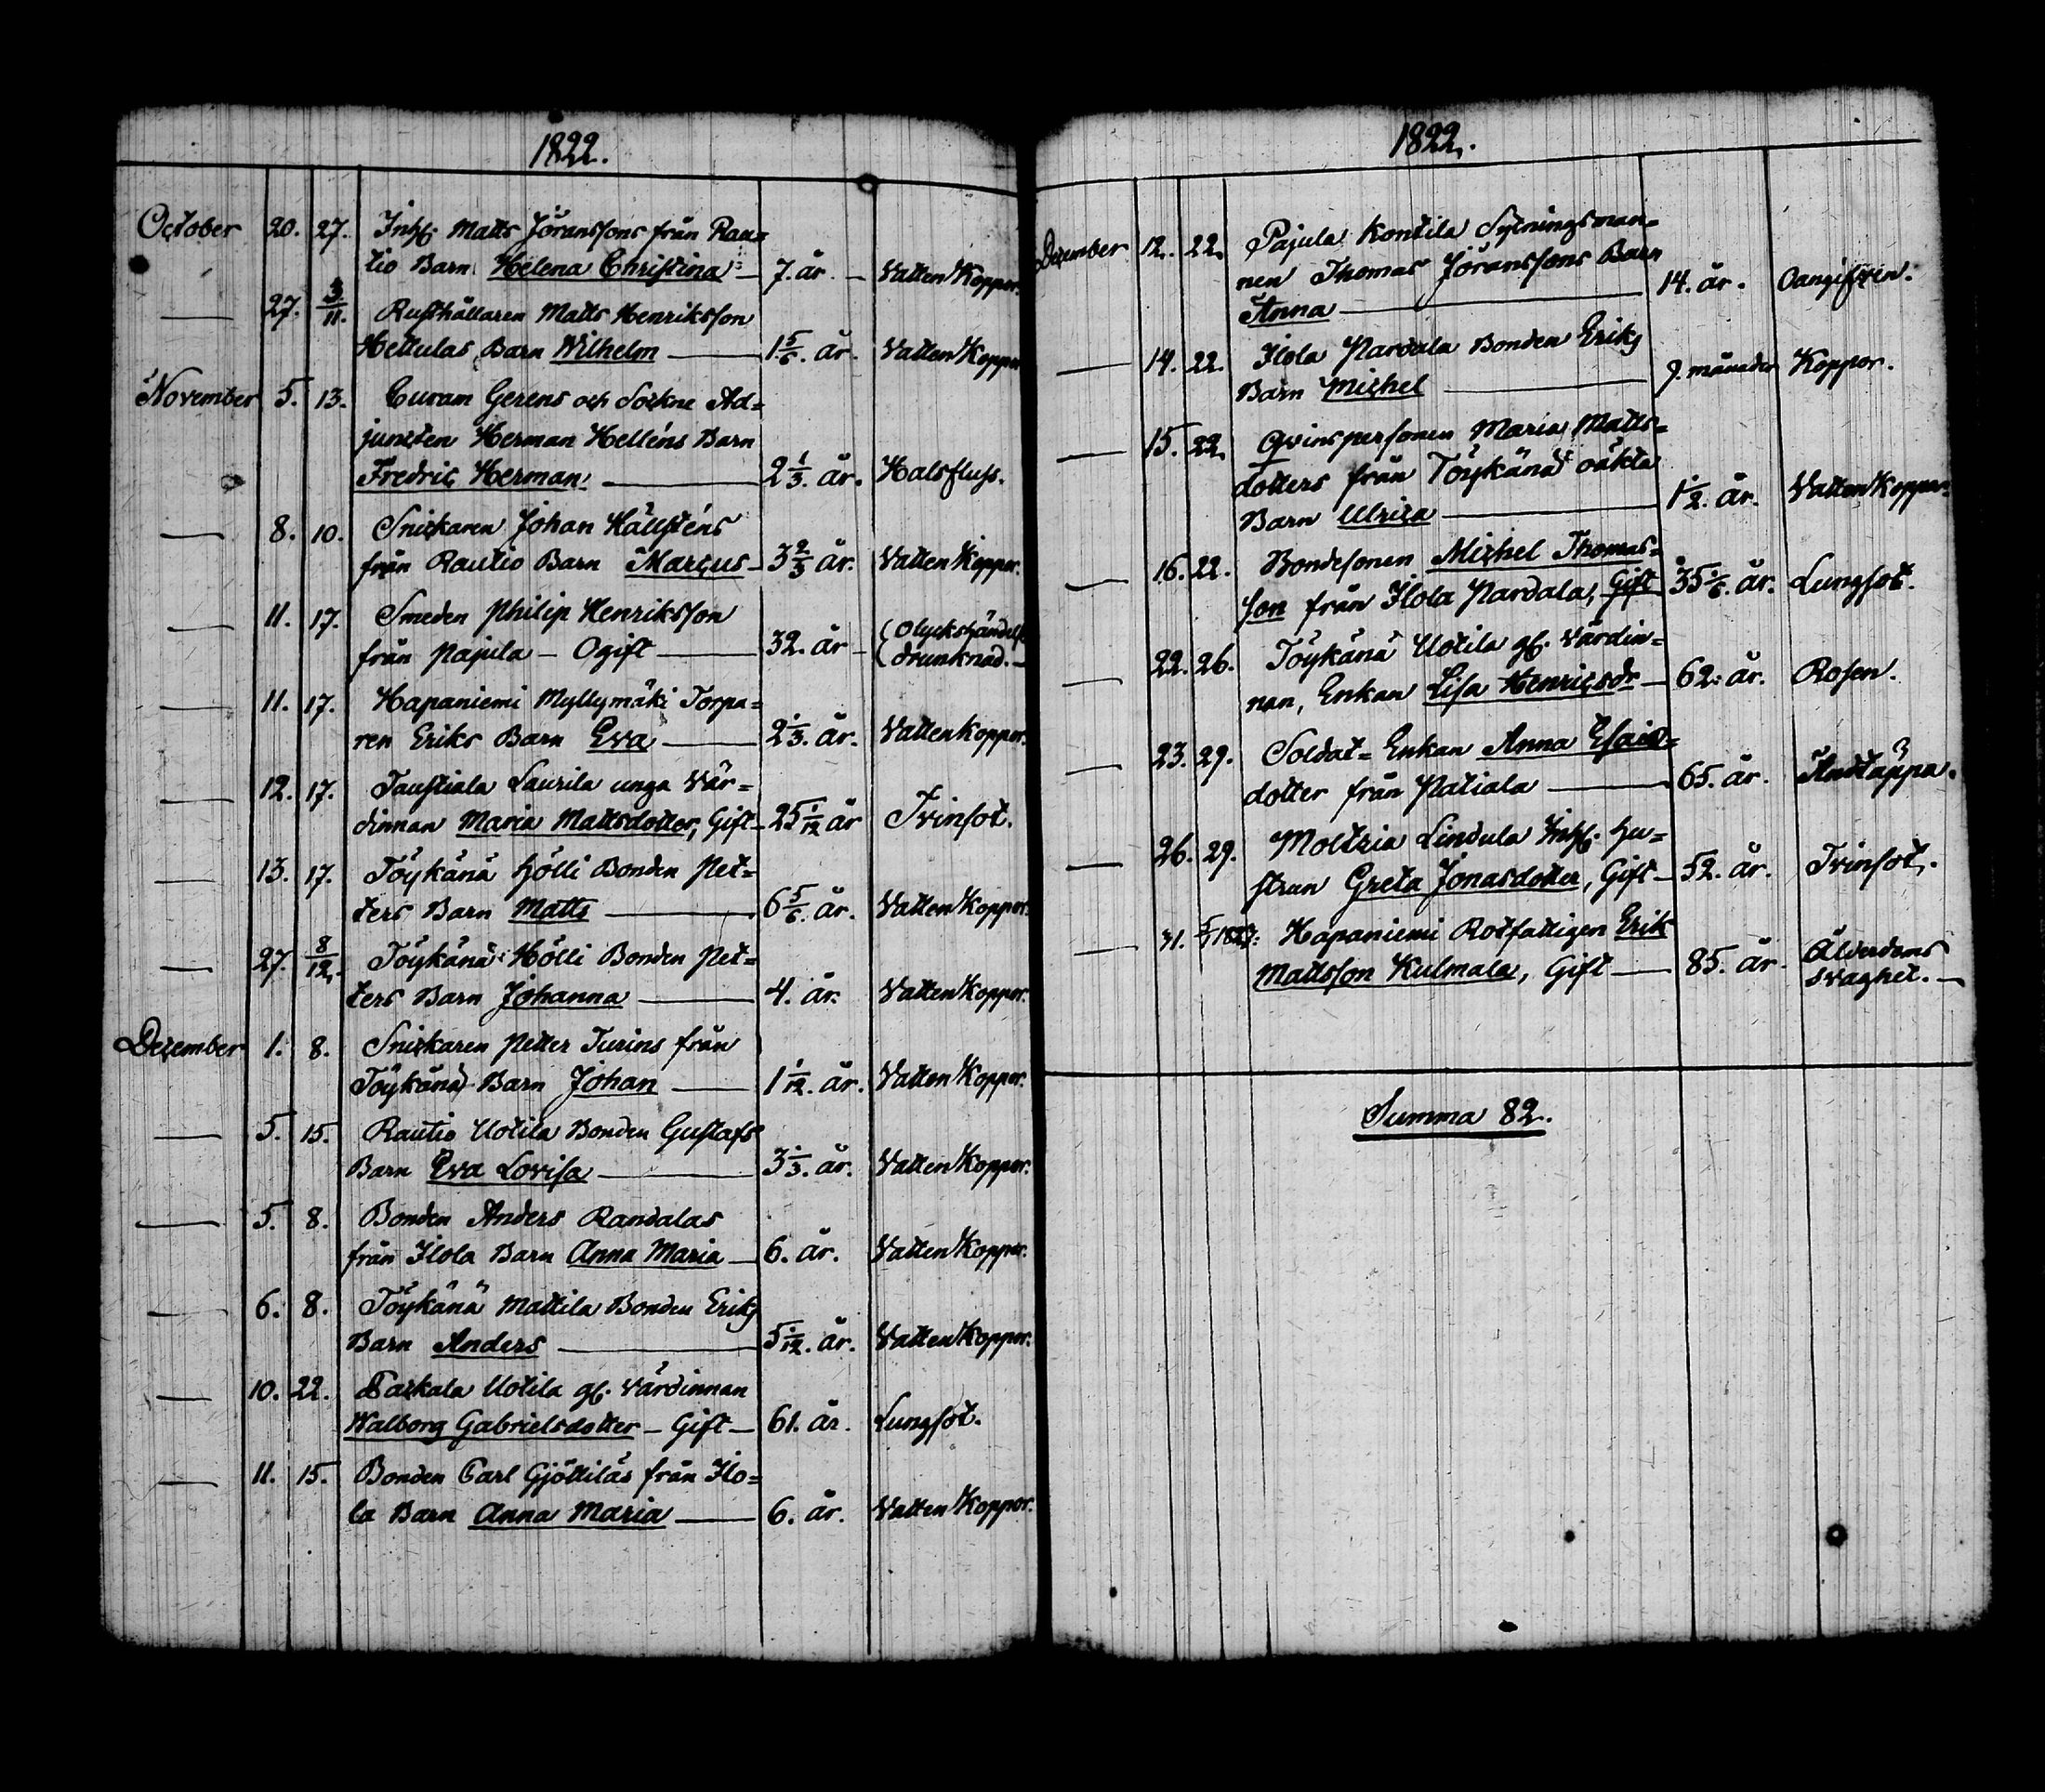 1822.
October 20. 27. Inh. Matts Jöranssons från Rau=
tio Barn Helena Christina — 7. år — Vatten Koppor.
— 27. 3/11. Rusthållaren Matts Henriksson
Hettulas Barn Wilhelm — 1 5/6. år. Vatten Koppor
November 5. 13. Curam Gerens och Sockne Ad=
juncten Herman Helléns Barn
Fredric Herman. — 2 1/3. år. Halsfluss.
— 8. 10. Snickaren Johan Hällsténs
från Rautio Barn Marcus — 3 2/3 år. Vatten Koppor.
— 11. 17. Smeden Philip Henriksson
från Pajula — Ogift — 32. år — (Olyckshändelse
(drunknad. —
— 11. 17. Hapaniemi Myllymäki Torpa=
ren Eriks Barn Eva — 2 1/3. år. Vatten koppor.
— 12. 17. Taustiala Laurila unga Vär=
dinnan Maria Mattsdotter, Gift — 25 1/12 år Tvinsot.
— 13. 17. Töykänä Hölli Bonden Pet=
ters Barn Matts — 6 5/6. år. Vatten Koppor.
— 27. 8/12. Töykänä Hölli Bonden Pet=
ters Barn Johanna — 4. år. Vatten Koppor.
December 1. 8. Snickaren Petter Turins från
Töykänä Barn Johan — 1 1/12. år. Vatten Koppor.
— 5. 15. Rautio Uotila Bonden Gustafs
Barn Eva Lovisa — 3 1/3. år. Vatten Koppor.
— 5. 8. Bonden Anders Randalas
från Ilola Barn Anna Maria — 6. år. Vatten Koppor.
— 6. 8. Töykänä Mattila Bonden Eriks
Barn Anders — 5 1/12. år. Vatten Koppor.
— 10. 22. Tarkala Uotila gl. Värdinnan
Walborg Gabrielsdotter — Gift — 61. år. Lungsot.
— 11. 15. Bonden Carl Gjöttiläs från Ilo=
la Barn Anna Maria — 6. år. Vatten Koppor.
1822.
December 12. 22. Pajula Kontila Sytningsman=
nen Thomas Jöranssons Barn
Anna — 14. år. Oangifven.
— 14. 22. Ilola Pardala Bonden Eriks
Barn Michel — 9. månader Koppor.
— 15. 22. Qvinspersonen Maria Matts=
dotters från Töykänä oäkta
Barn Ulrica — 1 1/2. år. Vatten Koppor.
— 16. 22. Bondesonen Michel Thomas=
son från Ilola Pardala, Gift 35 1/6. år. Lungsot.
— 22. 26. Töykänä Uotila gl. Värdin=
nan, Enkan Lisa Henricsdr — 62. år. Rosen.
— 23. 29. Soldat= Enkan Anna Esaias=
dotter från Patiala — 65. år. Andtäppa.
— 26. 29. Moltzia Lindula Inh. Hu=
strun Greta Jonasdotter, Gift — 52. år. Tvinsot.
— 31. 1823: Hapaniemi Rotfattigen Erik
Mattsson Kulmala, Gift — 85. år. Ålderdoms
svaghet. —
Summa 82.